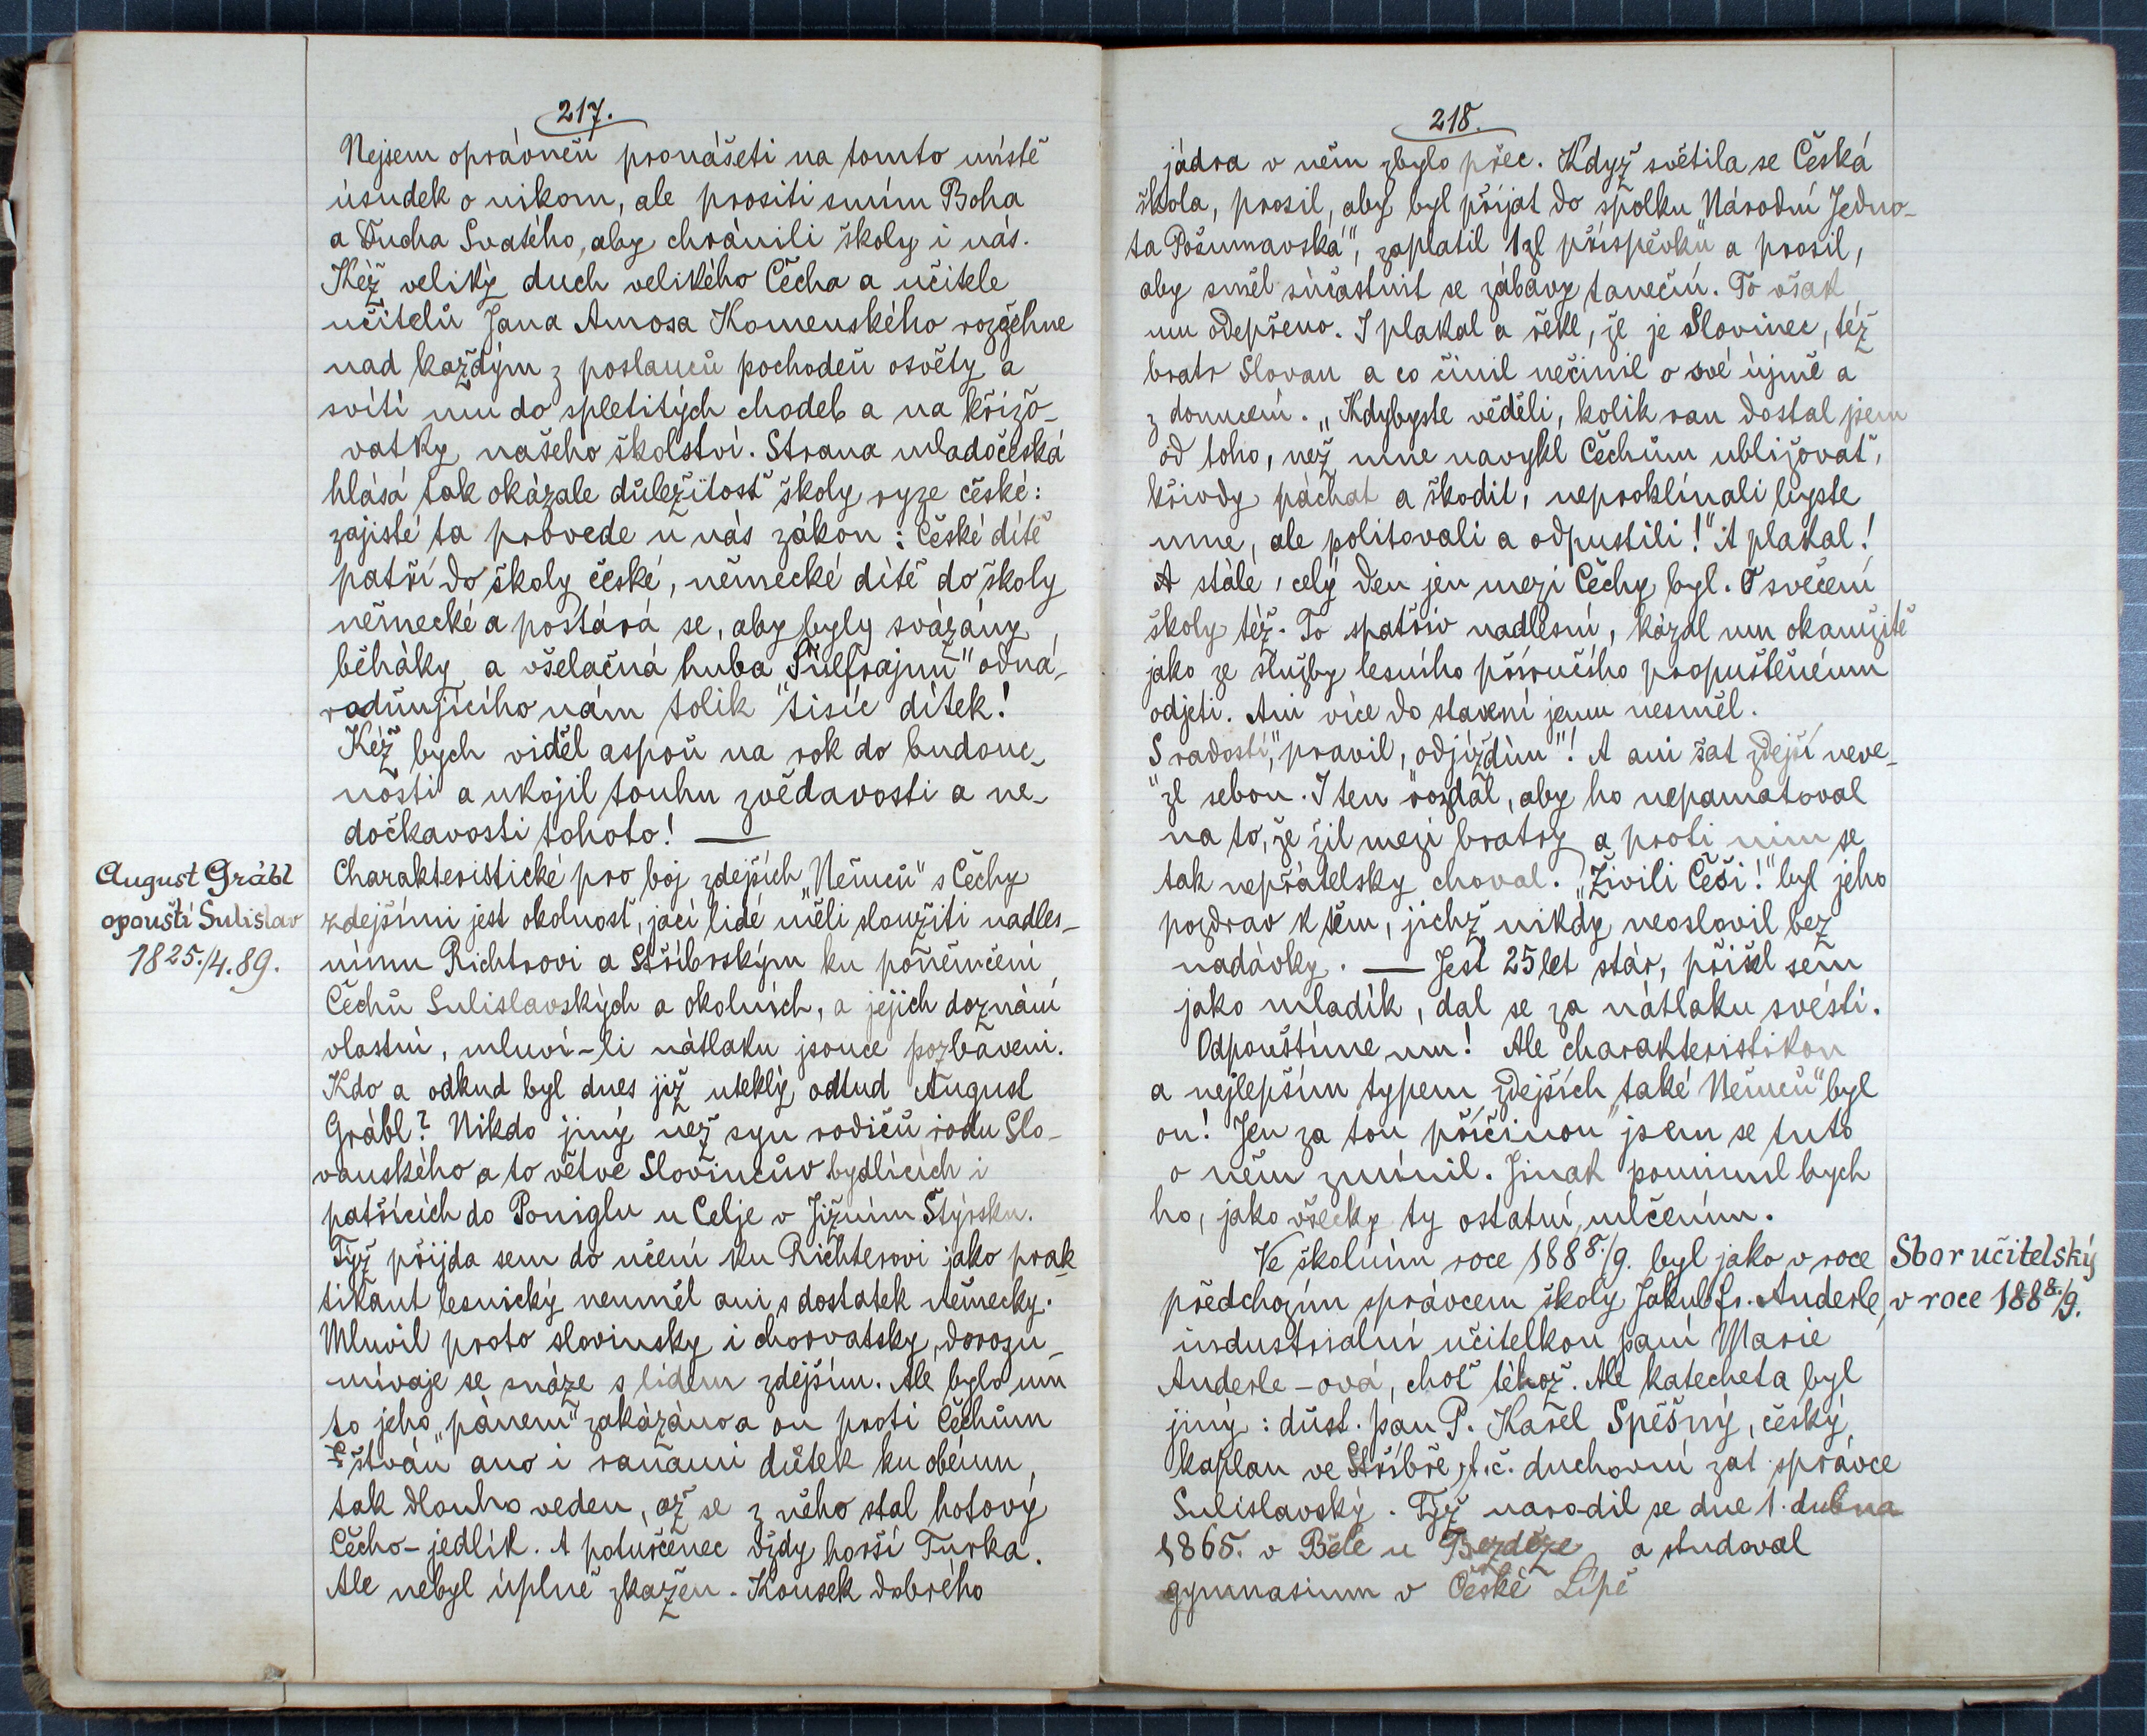 217.
Nejsem oprávněn pronášeti na tomto místě
úsudek o nikom, ale prositi smím Boha
a Ducha Svatého, aby chránili školy i nás.
Kéž veliký duch velikého Čecha a učitele
učitelů Jana Amosa Komenského rozžehne
nad každým z poslanců pochodeň osvěty a
svítí mu do spletitých chodeb a na křižo-
vatky našeho školství. Strana mladočeská
hlásá tak okázale důležitosť školy ryze české:
zajisté ta provede u nás zákon: České dítě
patří do školy české, německé dítě do školy
německé a postará se, aby byly svázány
běháky a všelačná huba „Šulfrajnu" odná-
rodňujícího nám tolik tisíc dítek!
Kéž bych viděl aspoň na rok do budouc-
nosti a ukojil touhu zvědavosti a ne-
dočkavosti tohoto! —
August Gräbl
opouští Sulislav
18 25./4. 89.
Charakteristické pro boj zdejších „Němců" s Čechy
zdejšími jest okolnosť, jací lidé měli sloužiti nadles-
nímu Richtrovi a Stříbrským ku poněmčení
Čechů Sulislavských a okolních, a jejich doznání
vlastní, mluví-li nátlaku jsouce pozbaveni.
Kdo a odkud byl dnes již uteklý odtud August
Gräbl? Nikdo jiný než syn rodičů rodu Slo-
vanského a to větve Slovincův bydlících i
patřících do Poniglu u Celje v Jižním Štýrsku.
Týž přijda sem do učení ku Richterovi jako prak
tikant lesnický neuměl ani s dostatek německy.
Mluvil proto slovinsky i chorvatsky, dorozu-
mívaje se snáze s lidem zdejším. Ale bylo mu
to jeho „pánem" zakázáno a on proti Čechům
štván ano i ranami důtek ku obému
tak dlouho veden, až se z něho stal hotový
Čecho-jedlík. A poturčenec vždy horší Turka.
Ale nebyl úplně zkažen. Kousek dobrého
218.
jádra v něm zbylo přec. Když světila se Česká
škola, prosil, aby byl přijat do spolku „Národní Jedno-
ta Pošumavská", zaplatil 1 zl příspěvku a prosil,
aby směl súčastnit se zábavy taneční. To však
mu odepřeno. I plakal a řekl, že je Slovinec, též
bratr Slovan a co činil nečinil o své újmě a
z donucení. „Kdybyste věděli, kolik ran dostal jsem
od toho, než mne navykl Čechům ubližovať,
křivdy páchat a škodit, neproklínali byste
mne, ale politovali a odpustili!" A plakal!
A stále, celý den jen mezi Čechy byl. O svěcení
školy též. To spatřiv nadlesní, kázal mu okamžitě
jako ze služby lesního příručího propuštěnému
odjeti. Ani více do stavení jemu nesměl.
„S radostí," pravil, „odjíždím"! A ani šat zdejší neve-
zl sebou. I ten rozdal, aby ho nepamatoval
na to, že žil mezi bratry a proti nim se
tak nepřátelsky choval. „Živili Češi!" byl jeho
pozdrav k těm, jichž nikdy neoslovil bez
nadávky. — Jest 25 let stár, přišel sem
jako mladík, dal se za nátlaku svésti.
Odpouštíme mu! Ale charakteristikou
a nejlepším typem zdejších „také Němců" byl
on! Jen za tou příčinou jsem se tuto
o něm zmínil. Jinak pominul bych
ho, jako všecky ty ostatní, mlčením.
Ve školním roce 1888./9. byl jako v roce
předchozím správcem školy Jakub Fr. Anderle,
industrialní učitelkou paní Marie
Anderle-ová, choť téhož. Ale katecheta byl
jiný: důst. pan P. Karel Spěšný, český
kaplan ve Stříbře, t. č. duchovní zat. správce
Sulislavský. Týž narodil se dne 1. dubna
1865. v Bělé u Bezděze a studoval
gymnasium v České Lípě
Sbor učitelský
v roce 1888./9.